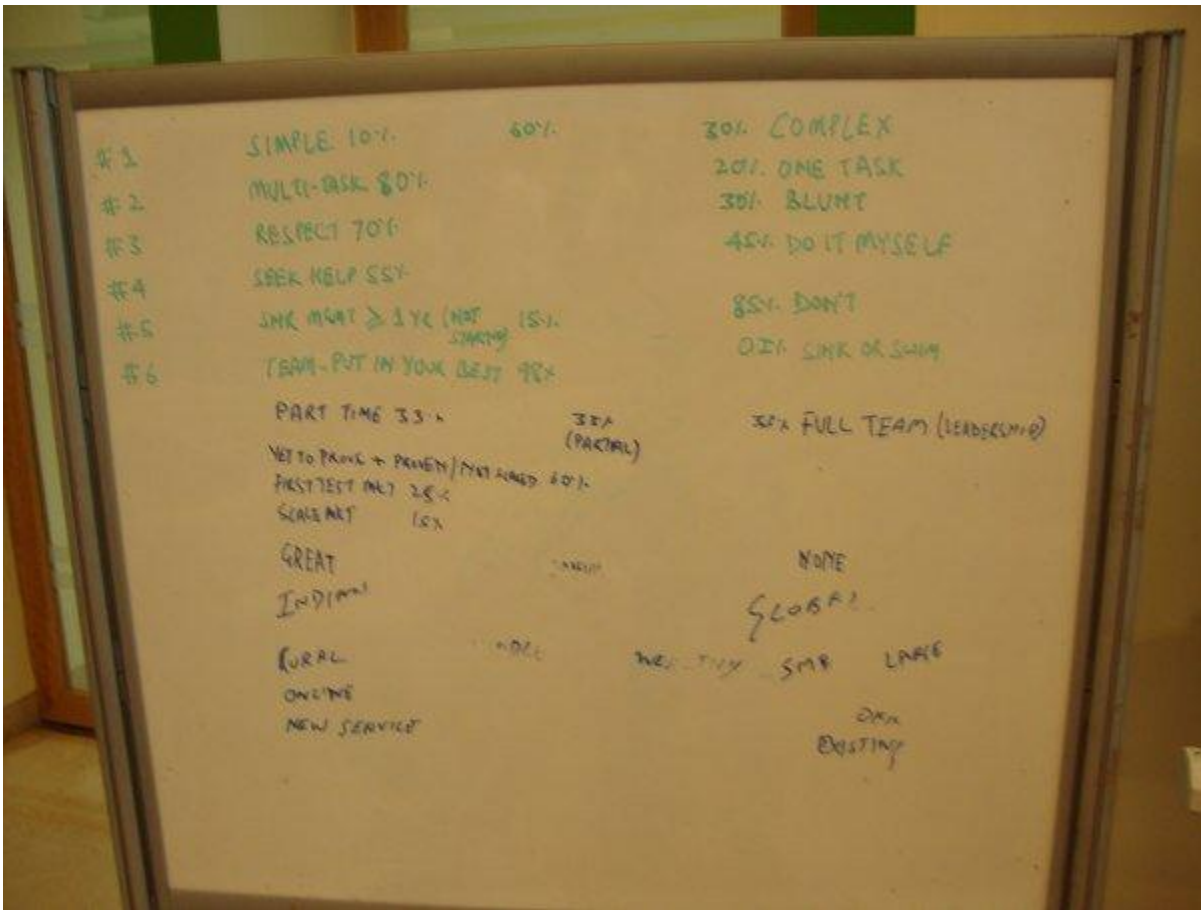 #1 SIMPLE 10% 60% 30% COMPLEX
#2 MULTI-TASK 80% 20% ONE TASK
#3 RESPECT 70% 30% BLUNT
#4 SEEK HELP 55% 45% DO IT MYSELF
#5 SNR MGMT ≥ 1 YR (NOT STARTUP) 15% 85% DON'T
#6 TEAM-PUT IN YOUR BEST 98% 02% SINK OR SWIM
PART TIME 33% 33% (PARTIAL) FULL TEAM (LEADERSHIP)
YET TO PROVE + PROVEN/NOT SCALED 60%
FIRST TEST MKT 25%
SCALE MKT 15%
GREAT NONE
INDIAN GLOBAL
RURAL SMB LARGE
ONLINE
NEW SERVICE EXISTING